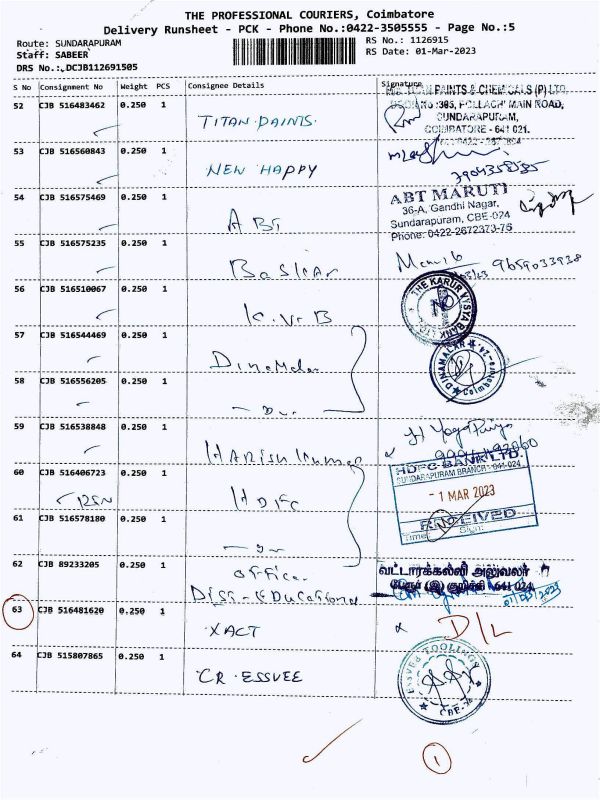 THE PROFESSIONAL COURIERS, Coimbatore
Delivery Runsheet - PCK - Phone No.:0422-3505555 - Page No.:5
Route: SUNDARAPURAM
RS No.: 1126915
Staff: SABEER
RS Date: 01-Mar-2023
DRS No.: DCJB112691505
S No Consignment No Weight PCS Consignee Details Signature
52 CJB 516483462 0.250 1 TITAN PAINTS
PAINTS & CHEMICALS (P) LTD.
POLLACHI MAIN ROAD,
SUNDARAPURAM,
COIMBATORE - 641 021.
53 CJB 516560843 0.250 1 NEW HAPPY
54 CJB 516575469 0.250 1 ABT
ABT MARUTI
36-A, Gandhi Nagar,
Sundarapuram, CBE-024
Phone: 0422-2672373-76
55 CJB 516575235 0.250 1 Baskar
9659033938
56 CJB 516510067 0.250 1 K.V.B
THE KARUR VYSYA BANK LTD.
57 CJB 516544469 0.250 1 Dinamalar
DINAMALAR
Coimbatore
58 CJB 516556205 0.250 1
59 CJB 516538848 0.250 1 Harish Kumar
60 CJB 516406723 0.250 1 HDFC
HDFC BANK LTD.
SUNDARAPURAM BRANCH - 641 024
- 1 MAR 2023
RECEIVED
Time: Sign:
61 CJB 516578180 0.250 1
62 CJB 89233205 0.250 1 Office
வட்டாரக்கல்வி அலுவலர்
641 024
63 CJB 516481620 0.250 1 XACT
D/L
64 CJB 515807865 0.250 1 CR ESSVEE
1